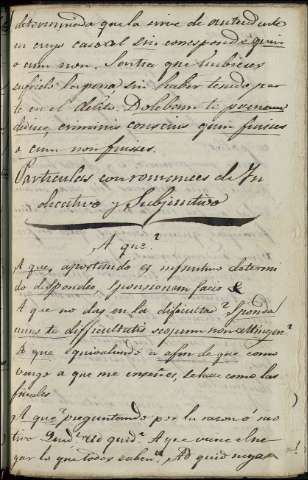 determinada que la
en cuyo caso el sin corresponde quin
o cum non. Sentia que hubieses
sufrido la pena sin haber tenido par
te en el delito. Dolebam te poenam
criminis conscius quin fuisses
o cum non fuisses.
Particulas con romances de In
dicativo y Subjuntivo
A que?
A que, apostando es infinitivo determi
do spondeo, sponsionem facio
A que no das en la dificultad? Sponda
mus te difficultatis scopum non attingere?
A que equivaliendo a afin de que como
vengo a que me enseñes, se hace como las
finales
A que? preguntando por la razon o mo
tivo Quid? ad quid? A que viene el ne
gar lo que todos saben? Ad quid nega